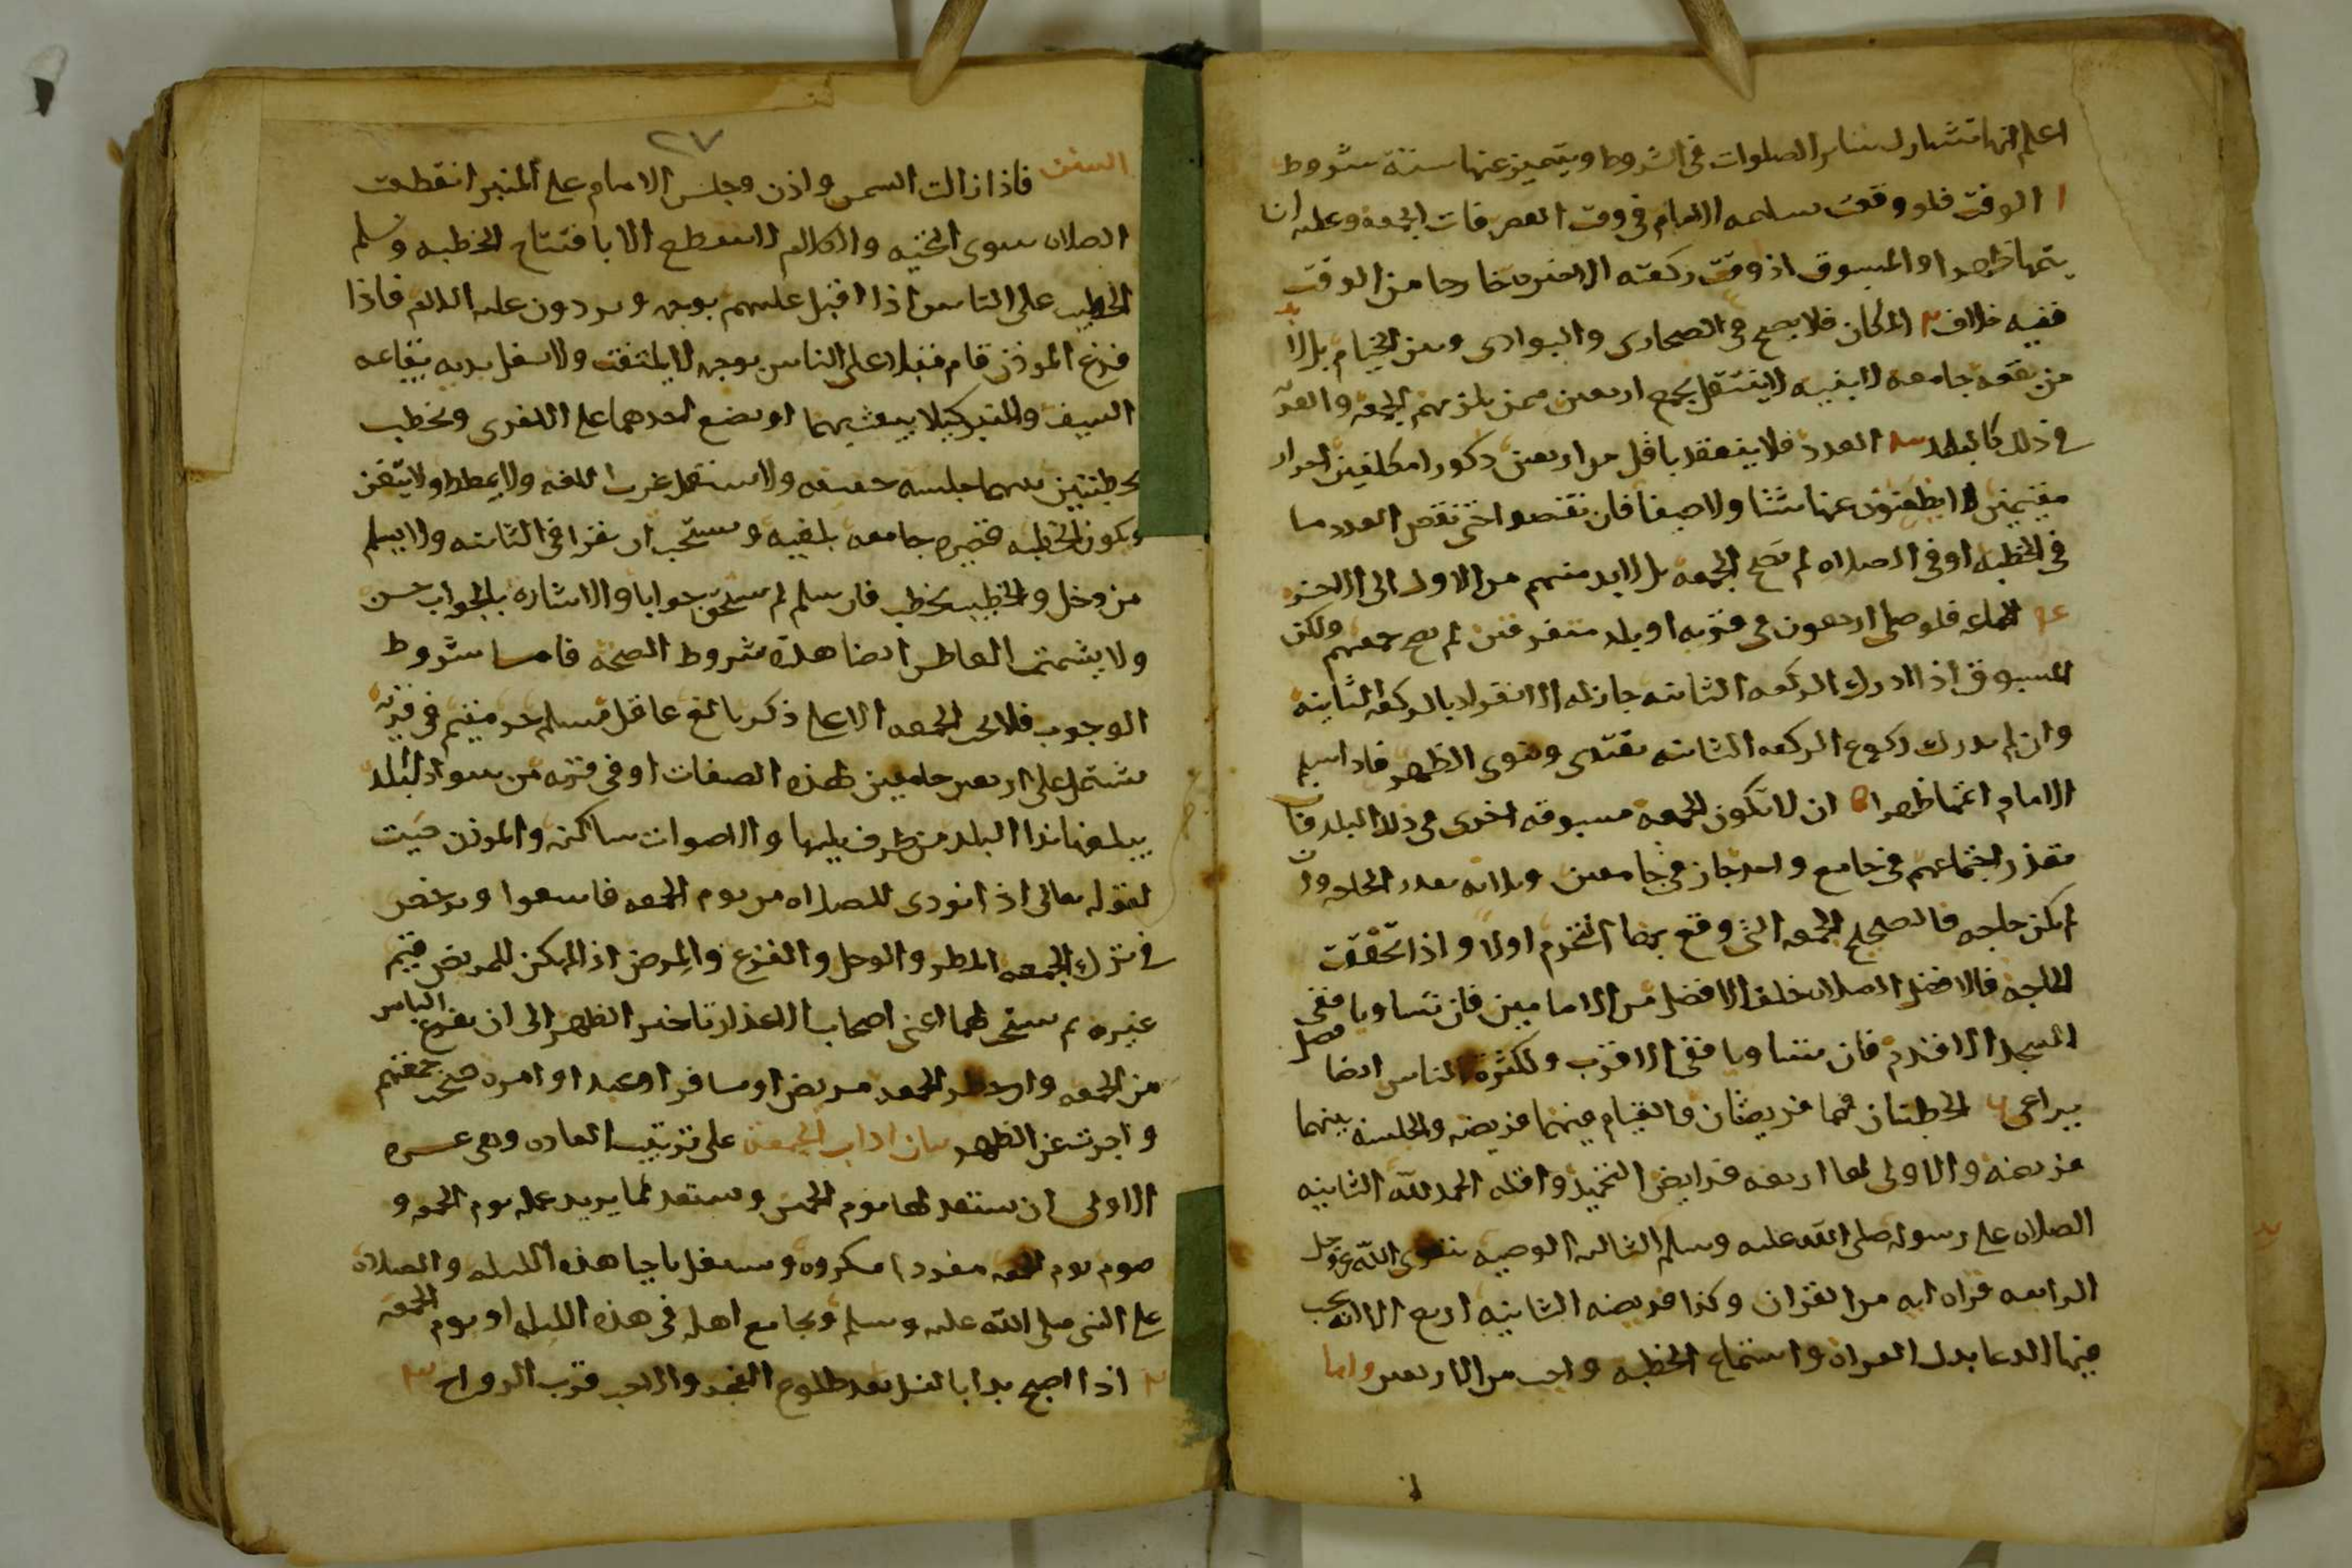 اعلم انها تشارك سائر الصلوات في الشروط ويتميز عنها ستة شروط
١ الوقت فلو وقعت تسليمة الامام في وقت العصر فات الجمعة وعليه ان
يتمها ظهرا والمسبوق اذ وقت ركعته الاخيره خارجا من الوقت
ففيه خلاف ٢ المكان فلا يصح في الصحارى والبوادى وبين الخيام بل لا بد
من بقعة جامعة لابنية لا ينتقل يجمع اربعين ممن يلزمهم الجمعة والقرية
في ذلك كالبلد ٣ العدد فلا ينعقد باقل من اربعين ذكورا مكلفين احرار
مقيمين لا يظعنون عنها شتا ولا صيفا فان نقصوا حتى نقص العدد اما
في الخطبه او في الصلاه لم تصح الجمعه بل لابد منهم من الاول الى الاخر
٤ الجماعه فلو صلى اربعون في قريه او بلد متفرقين لم يصح جمعتهم ولكن
المسبوق اذا ادرك الركعه الثانيه جاز له الانفراد بالركعه الثانيه
وان لم يدرك ركوع الركعه الثانيه يقتدى وينوى الظهر فاذا سلم
الامام اتمها ظهرا ٥ ان لا تكون الجمعة مسبوقه اخرى في ذلك البلد فان
تعذر اجتماعهم في جامع واحد جاز في جامعين وثلاثه بقدر الحاجه وان
لم تكن حاجه فالصحيح الجمعه التي وقع بها التحرم اولا واذا تحققت
الحاجه فالافضل الصلاه خلف الافضل من الامامين فان تساويا ففى
المسجد الاقدم فان تساويا ففى الاقرب ولكثرة الناس ايضا فضل
يراعى ٦ الخطبتان فهما فريضتان والقيام فيهما فريضه والجلسه بينهما
فريضه والاولى لها اربعه فرايض التحميد واقله الحمد لله الثانيه
الصلاه على رسوله صلى الله عليه وسلم الثالثه الوصيه بتقوى الله عز وجل
الرابعه قراه ايه من القران وكذا فريضه الثانيه اربع الا انه يجب
فيها الدعا بدل القراه واستماع الخطبه واجب من الاربعين واما
٢٧
السنن فاذا زالت الشمس واذن وجلس الامام على المنبر انقطعت
الصلاه سوى التحيه والكلام لا ينقطع الا بافتتاح الخطبه ويسلم
الخطيب على الناس اذا اقبل عليهم بوجهه ويردون عليه السلام فاذا
فرغ الموذن قام مقبلا على الناس بوجهه لا يلتفت ولا يشغل يديه بقائمه
السيف والمنبر كيلا يعبث بهما او يضع احدهما على الاخرى ويخطب
خطبتين بينهما جلسه خفيفه ولا يستعمل غريب اللغه ولا يمطط ولا يتغنى
وتكون الخطبه قصيره جامعه بلغيه ويستحب ان يقرا في الثانيه ولا يسلم
من دخل والخطيب يخطب فان سلم لم يستحق جوابا والاشاره بالجواب حسن
ولا يشمت العاطس ايضا هذه شروط الصحه فاما شروط
الوجوب فلا تجب الجمعه الا على ذكر بالغ عاقل مسلم حر مقيم في قريه
تشتمل على اربعين جامعين لهذه الصفات او في قريه من سواد البلد
يبلغها ندا البلد من طرف يليها والاصوات ساكنه والموذن صيت
لقوله تعالى اذا نودى للصلاه من يوم الجمعه فاسعوا ويرخص
في ترك الجمعه المطر والوحل والفزع والمرض اذا لم يكن للمريض قيم
غيره ثم يستحب لهما اعنى اصحاب الاعذار تاخير الظهر الى ان يفرغ الناس
من الجمعه وان حضر الجمعه مريض او مسافر او عبد او امره صحت جمعتهم
واجزت عن الظهر بيان اداب الجمعة على ترتيب العاده وهى عشره
الاولى ان يستعد لها يوم الخميس ويستعد لما يريد عمله يوم الجمعه و
صوم يوم الجمعه مفردا مكروه ويشتغل باحيا هذه الليله والصلاه
على النبى صلى الله عليه وسلم ويجامع اهله في هذه الليله او يوم الجمعه
٢ اذا اصبح بدا بالغسل بعد طلوع الفجر والاحب قرب الرواح ٣